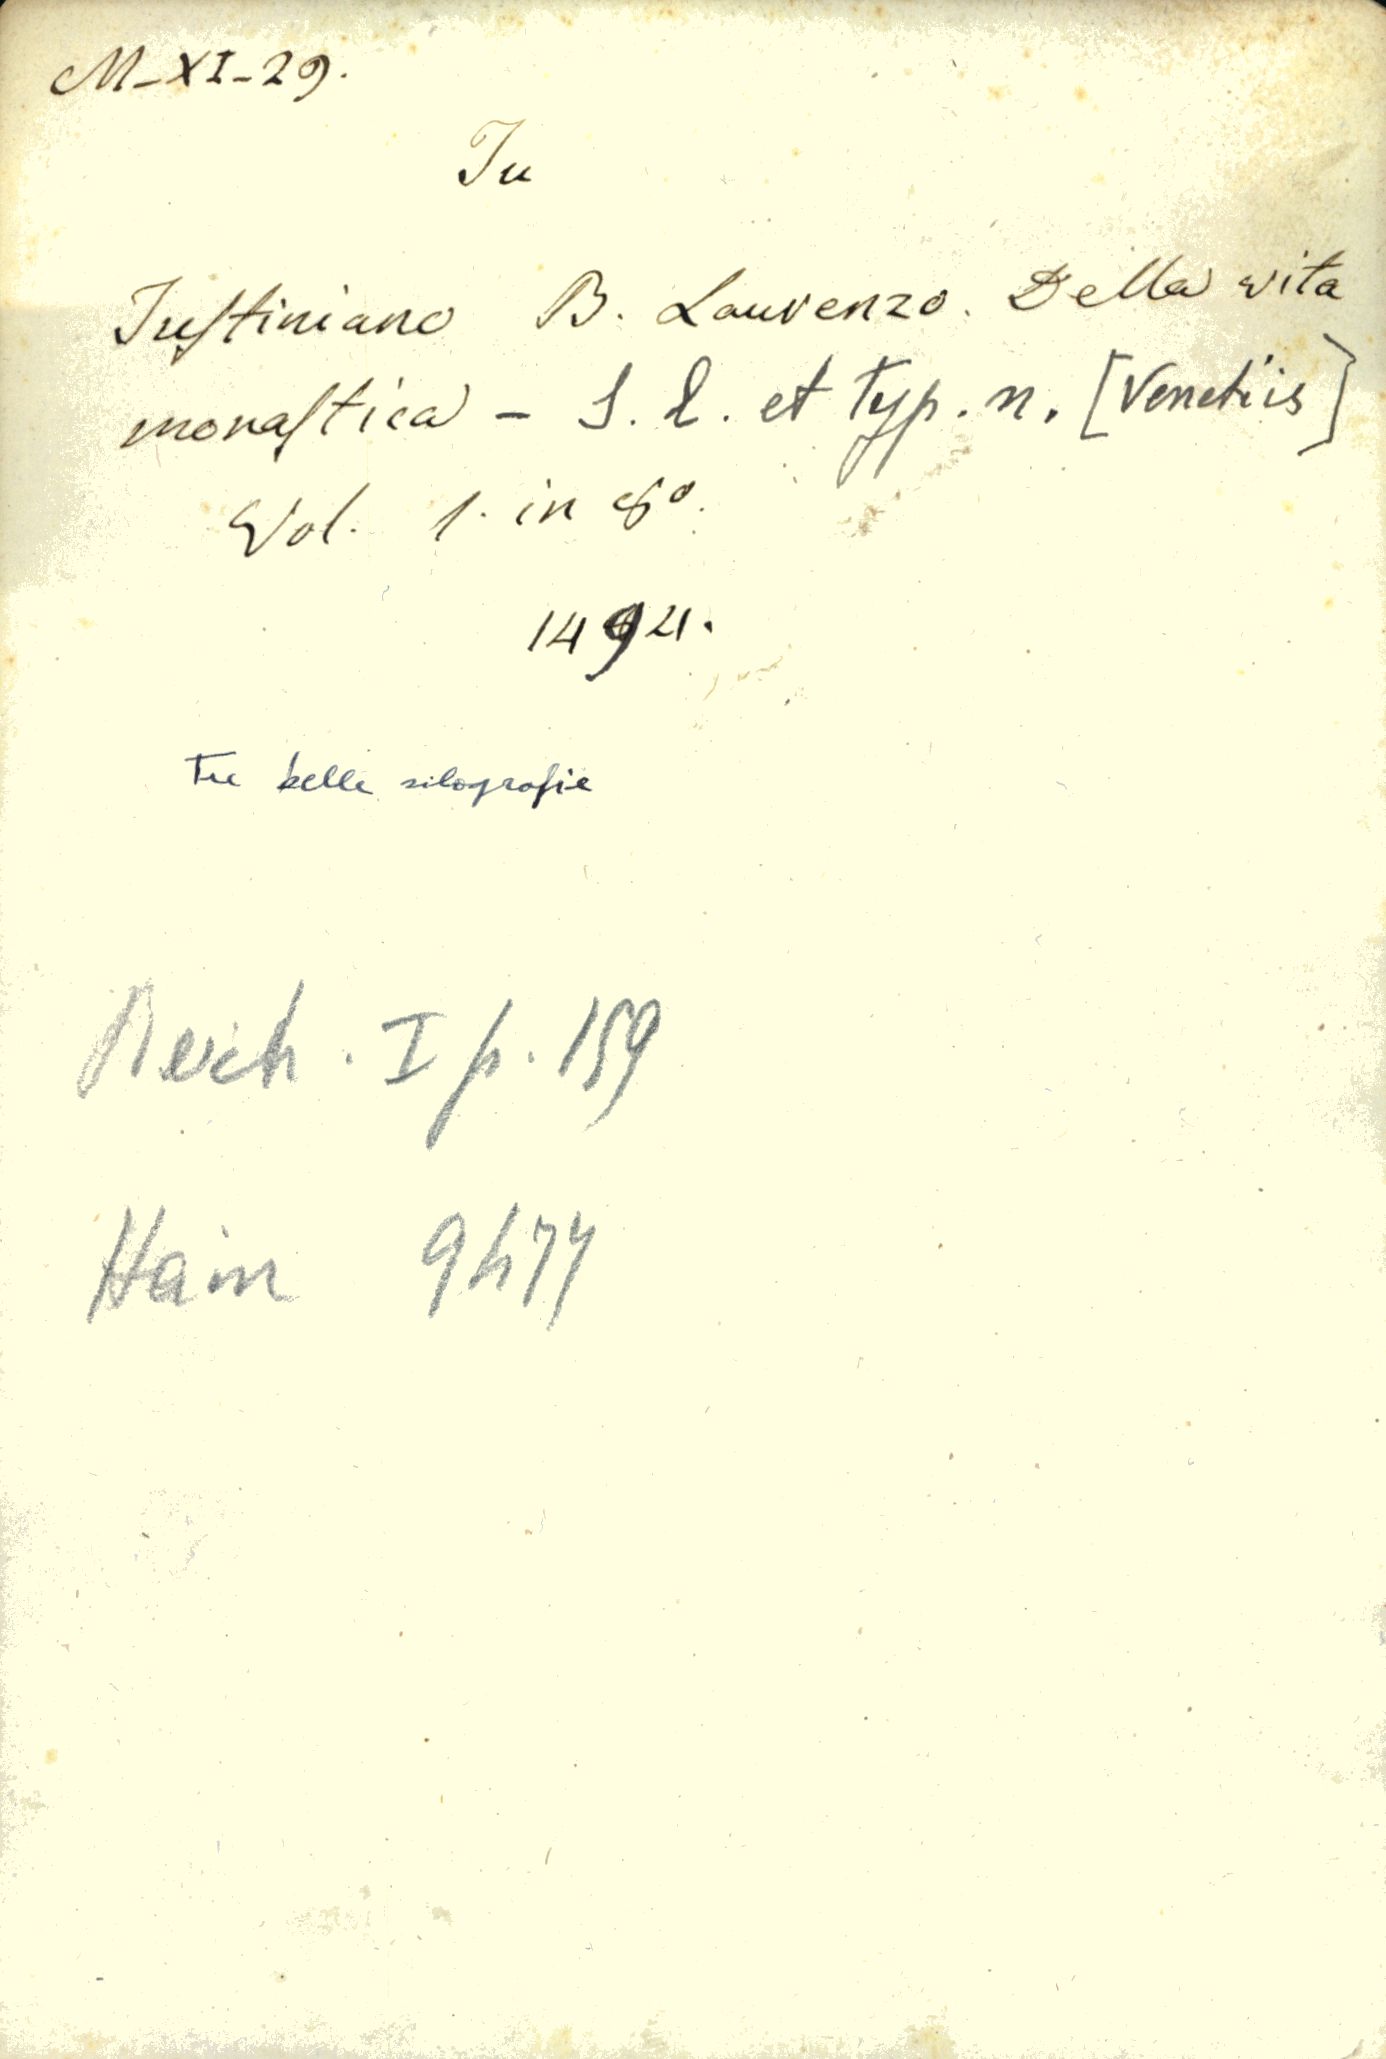 M-XI-29.
Iu
Iuſtiniano B. Laurenzo. Della vita
monaſtica - S. l. et typ. n. [Venetiis]
Vol. 1. in 8º.
1494.
Tre belle silografie
Reich. I p. 159
Hain 9477